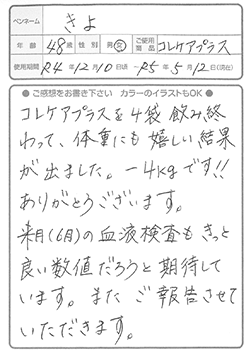 ペンネーム きよ
年齢 48歳 性別 男・女 ご使用商品 コレケアプラス
使用期間 R4年12月10日頃 ～R5年5月12日(現在)
● ご感想をお書き下さい カラーのイラストもOK ●
コレケアプラスを4袋飲み終
わって、体重にも嬉しい結果
が出ました。－4kgです!!
ありがとうございます。
来月(6月)の血液検査もきっと
良い数値だろうと期待して
います。またご報告させて
いただきます。